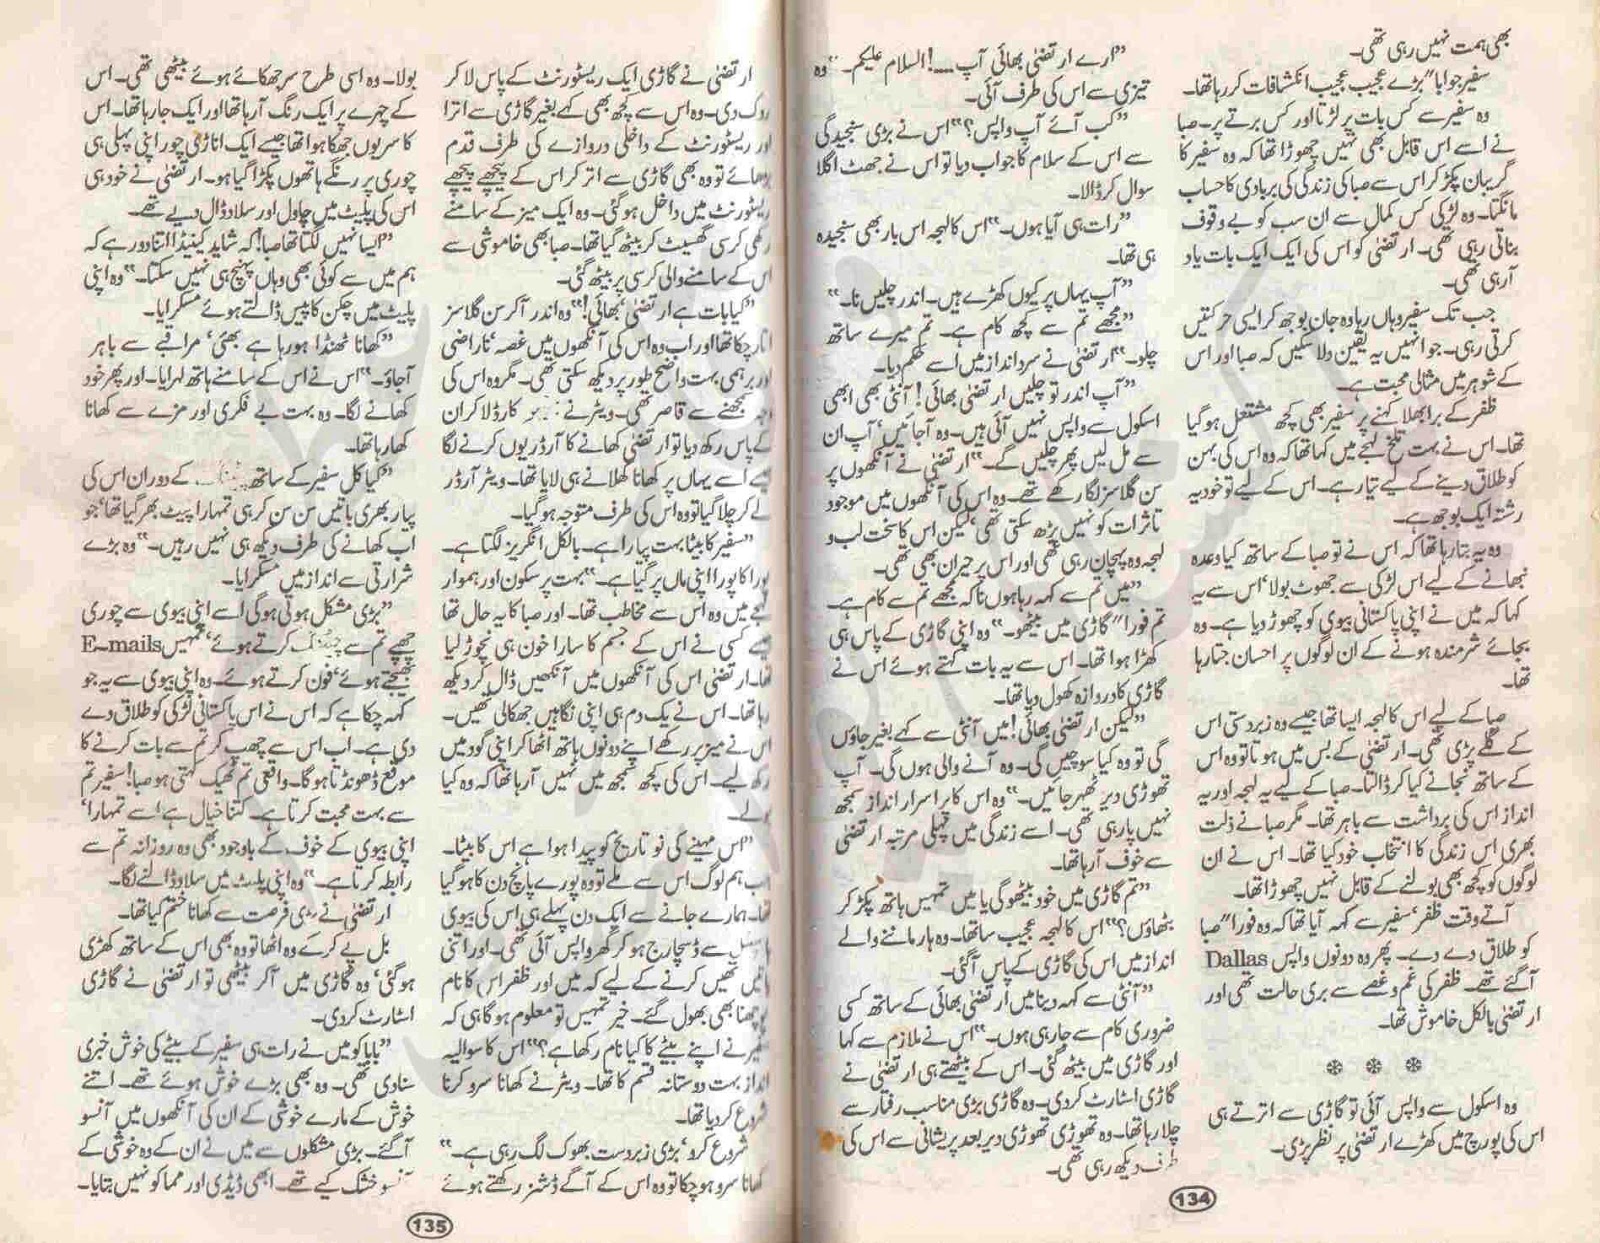 بھی ہمت نہیں رہی تھی۔
سفیر جواباً ''بڑے عجیب عجیب انکشافات کر رہا تھا۔
وہ سفیر سے کس بات پر لڑتا اور کس برتے پر۔ صبا
نے اسے اس قابل بھی نہیں چھوڑا تھا کہ وہ سفیر کا
گریبان پکڑ کر اس سے صبا کی زندگی کی بربادی کا حساب
مانگتا۔ وہ لڑکی کس کمال سے ان سب کو بے وقوف
بناتی رہی تھی۔ ارتضیٰ کو اس کی ایک ایک بات یاد
آ رہی تھی۔
جب تک سفیر وہاں رہا وہ جان بوجھ کر ایسی حرکتیں
کرتی رہی۔ جو انہیں یہ یقین دلا سکیں کہ صبا اور اس
کے شوہر میں مثالی محبت ہے۔
ظفر کے برا بھلا کہنے پر سفیر بھی کچھ مشتعل ہو گیا
تھا۔ اس نے بہت تلخ لہجے میں کہا تھا کہ وہ اس کی بہن
کو طلاق دینے کے لیے تیار ہے۔ اس کے لیے تو خود یہ
رشتہ ایک بوجھ ہے۔
وہ یہ بتا رہا تھا کہ اس نے تو صبا کے ساتھ کیا وعدہ
نبھانے کے لیے اس لڑکی سے جھوٹ بولا' اس سے یہ
کہا کہ میں نے اپنی پاکستانی بیوی کو چھوڑ دیا ہے۔ وہ
بجائے شرمندہ ہونے کے ان لوگوں پر احسان جتا رہا
تھا۔
صبا کے لیے اس کا لہجہ ایسا تھا جیسے وہ زبردستی اس
کے گلے پڑی تھی۔ ارتضیٰ کے بس میں ہوتا تو وہ اس
کے ساتھ نجانے کیا کر ڈالتا۔ صبا کے لیے یہ لہجہ اور یہ
انداز اس کی برداشت سے باہر تھا۔ مگر صبا نے ذلت
بھری اس زندگی کا انتخاب خود کیا تھا۔ اس نے ان
لوگوں کو کچھ بھی بولنے کے قابل نہیں چھوڑا تھا۔
آتے وقت ظفر' سفیر سے کہہ آیا تھا کہ وہ فوراً'' صبا
کو طلاق دے دے۔ پھر وہ دونوں واپس Dallas
آ گئے تھے۔ ظفر کی غم و غصے سے بری حالت تھی اور
ارتضیٰ بالکل خاموش تھا۔
* * *
وہ اسکول سے واپس آئی تو گاڑی سے اترتے ہی
اس کی پورچ میں کھڑے ارتضیٰ پر نظر پڑی۔
''ارے ارتضیٰ بھائی آپ.....! السلام علیکم۔'' وہ
تیزی سے اس کی طرف آئی۔
''کب آئے آپ واپس؟'' اس نے بڑی سنجیدگی
سے اس کے سلام کا جواب دیا تو اس نے جھٹ اگلا
سوال کر ڈالا۔
''رات ہی آیا ہوں۔'' اس کا لہجہ اس بار بھی سنجیدہ
ہی تھا۔
''آپ یہاں پر کیوں کھڑے ہیں۔ اندر چلیں نا۔''
''مجھے تم سے کچھ کام ہے۔ تم میرے ساتھ
چلو۔'' ارتضیٰ نے سرد انداز میں اسے حکم دیا۔
''آپ اندر تو چلیں ارتضیٰ بھائی! آنٹی بھی ابھی
اسکول سے واپس نہیں آئی ہیں۔ وہ آجائیں' آپ ان
سے مل لیں پھر چلیں گے۔'' ارتضیٰ نے آنکھوں پر
سن گلاسز لگا رکھے تھے۔ وہ اس کی آنکھوں میں موجود
تاثرات کو نہیں پڑھ سکتی تھی' لیکن اس کا سخت لب و
لہجہ وہ پہچان رہی تھی اور اس پر حیران بھی تھی۔
''میں تم سے کہہ رہا ہوں نا کہ مجھے تم سے کام ہے۔
تم فوراً'' گاڑی میں بیٹھو۔'' وہ اپنی گاڑی کے پاس ہی
کھڑا ہوا تھا۔ اس سے یہ بات کہتے ہوئے اس نے
گاڑی کا دروازہ کھول دیا تھا۔
''لیکن ارتضیٰ بھائی! میں آنٹی سے کہے بغیر جاؤں
گی تو وہ کیا سوچیں گی۔ وہ آنے والی ہوں گی۔ آپ
تھوڑی دیر ٹھہر جائیں۔'' وہ اس کا پراسرار انداز سمجھ
نہیں پا رہی تھی۔ اسے زندگی میں پہلی مرتبہ ارتضیٰ
سے خوف آ رہا تھا۔
''تم گاڑی میں خود بیٹھو گی یا میں تمہیں ہاتھ پکڑ کر
بٹھاؤں؟'' اس کا لہجہ عجیب سا تھا۔ وہ ہار ماننے والے
انداز میں اس کی گاڑی کے پاس آ گئی۔
''آنٹی سے کہہ دینا میں ارتضیٰ بھائی کے ساتھ کسی
ضروری کام سے جا رہی ہوں۔'' اس نے ملازم سے کہا
اور گاڑی میں بیٹھ گئی۔ اس کے بیٹھتے ہی ارتضیٰ نے
گاڑی اسٹارٹ کر دی۔ وہ گاڑی بڑی مناسب رفتار سے
چلا رہا تھا۔ وہ تھوڑی تھوڑی دیر بعد پریشانی سے اس کی
طرف دیکھ رہی تھی۔
134
ارتضیٰ نے گاڑی ایک ریسٹورنٹ کے پاس لا کر
روک دی۔ وہ اس سے کچھ بھی کہے بغیر گاڑی سے اترا
اور ریسٹورنٹ کے داخلی دروازے کی طرف قدم
بڑھائے تو وہ بھی گاڑی سے اتر کر اس کے پیچھے پیچھے
ریسٹورنٹ میں داخل ہو گئی۔ وہ ایک میز کے سامنے
رکھی کرسی گھسیٹ کر بیٹھ گیا تھا۔ صبا بھی خاموشی سے
اس کے سامنے والی کرسی پر بیٹھ گئی۔
''کیا بات ہے ارتضیٰ بھائی!'' وہ اندر آ کر سن گلاسز
اتار چکا تھا اور اب وہ اس کی آنکھوں میں غصہ' ناراضی
اور برہمی بہت واضح طور پر دیکھ سکتی تھی۔ مگر وہ اس کی
وجہ سمجھنے سے قاصر تھی۔ ویٹر نے کارڈ لا کر ان
کے پاس رکھ دیا تو ارتضیٰ کھانے کا آرڈر یوں کرنے لگا
جیسے اسے یہاں پر کھانا کھلانے ہی لایا تھا۔ ویٹر آرڈر
لے کر چلا گیا تو وہ اس کی طرف متوجہ ہو گیا۔
''سفیر کا بیٹا بہت پیارا ہے۔ بالکل انگریز لگتا ہے۔
پورا کا پورا اپنی ماں پر گیا ہے۔'' بہت پرسکون اور ہموار
لہجے میں وہ اس سے مخاطب تھا۔ اور صبا کا یہ حال تھا
جیسے کسی نے اس کے جسم کا سارا خون ہی نچوڑ لیا
تھا۔ ارتضیٰ اس کی آنکھوں میں آنکھیں ڈال کر دیکھ
رہا تھا۔ اس نے یک دم ہی اپنی نگاہیں جھکا لی تھیں۔
اس نے میز پر رکھے اپنے دونوں ہاتھ اٹھا کر اپنی گود میں
رکھ لیے۔ اس کی کچھ سمجھ میں نہیں آ رہا تھا کہ وہ کیا
بولے۔
''اس مہینے کی نو تاریخ کو پیدا ہوا ہے اس کا بیٹا۔
جب ہم لوگ اس سے ملے تو وہ پورے پانچ دن کا ہو گیا
تھا۔ ہمارے جانے سے ایک دن پہلے ہی اس کی بیوی
سے ڈسچارج ہو کر گھر واپس آئی تھی۔ اور اتنی
باتیں تھیں کرنے کے لیے کہ میں اور ظفر اس کا نام
پوچھنا بھی بھول گئے۔ خیر تمہیں تو معلوم ہو گا ہی کہ
سفیر نے اپنے بیٹے کا کیا نام رکھا ہے؟'' اس کا سوالیہ
انداز بہت دوستانہ قسم کا تھا۔ ویٹر نے کھانا سرو کرنا
شروع کر دیا تھا۔
شروع کرو' بڑی زبردست بھوک لگ رہی ہے۔''
کھانا سرو ہو چکا تو وہ اس کے آگے ڈشز رکھتے ہوئے
بولا۔ وہ اسی طرح سر جھکائے ہوئے بیٹھی تھی۔ اس
کے چہرے پر ایک رنگ آ رہا تھا اور ایک جا رہا تھا۔ اس
کا سر یوں جھکا ہوا تھا جیسے ایک اناڑی چور اپنی پہلی ہی
چوری پر رنگے ہاتھوں پکڑا گیا ہو۔ ارتضیٰ نے خود ہی
اس کی پلیٹ میں چاول اور سلاد ڈال دیے تھے۔
''ایسا نہیں لگتا تھا صبا! کہ شاید کینیڈا اتنا دور ہے کہ
ہم میں سے کوئی بھی وہاں پہنچ ہی نہیں سکتا۔'' وہ اپنی
پلیٹ میں چکن کا پیس ڈالتے ہوئے مسکرایا۔
''کھانا ٹھنڈا ہو رہا ہے بھئی' مراقبے سے باہر
آجاؤ۔'' اس نے اس کے سامنے ہاتھ لہرایا۔ اور پھر خود
کھانے لگا۔ وہ بہت بے فکری اور مزے سے کھانا
کھا رہا تھا۔
''کیا کل سفیر کے ساتھ کے دوران اس کی
پیار بھری باتیں سن سن کر ہی تمہارا پیٹ بھر گیا تھا' جو
اب کھانے کی طرف دیکھ ہی نہیں رہیں۔'' وہ بڑے
شرارتی سے انداز میں مسکرایا۔
''بڑی مشکل ہوتی ہو گی اسے اپنی بیوی سے چوری
چھپے تم سے کرتے ہوئے' تمہیں E-mails
بھیجتے ہوئے' فون کرتے ہوئے۔ وہ اپنی بیوی سے یہ جو
کہہ چکا ہے کہ اس نے اس پاکستانی لڑکی کو طلاق دے
دی ہے۔ اب اس سے چھپ کر تم سے بات کرنے کا
موقع ڈھونڈتا ہو گا۔ واقعی تم ٹھیک کہتی ہو صبا! سفیر تم
سے بہت محبت کرتا ہے۔ کتنا خیال ہے اسے تمہارا'
اپنی بیوی کے خوف کے باوجود بھی وہ روزانہ تم سے
رابطہ کرتا ہے۔'' وہ اپنی پلیٹ میں سلاد ڈالنے لگا۔
ارتضیٰ نے بڑی فرصت سے کھانا ختم کیا تھا۔
بل پے کر کے وہ اٹھا تو وہ بھی اس کے ساتھ کھڑی
ہو گئی' وہ گاڑی میں آ کر بیٹھی تو ارتضیٰ نے گاڑی
اسٹارٹ کر دی۔
''بابا کو میں نے رات ہی سفیر کے بیٹے کی خوش خبری
سنا دی تھی۔ وہ بھی بڑے خوش ہوئے تھے۔ اتنے
خوش کے مارے خوشی کے ان کی آنکھوں میں آنسو
آ گئے۔ بڑی مشکلوں سے میں نے ان کے وہ خوشی کے
آنسو خشک کیے تھے۔ ابھی ڈیڈی اور مما کو نہیں بتایا۔
135